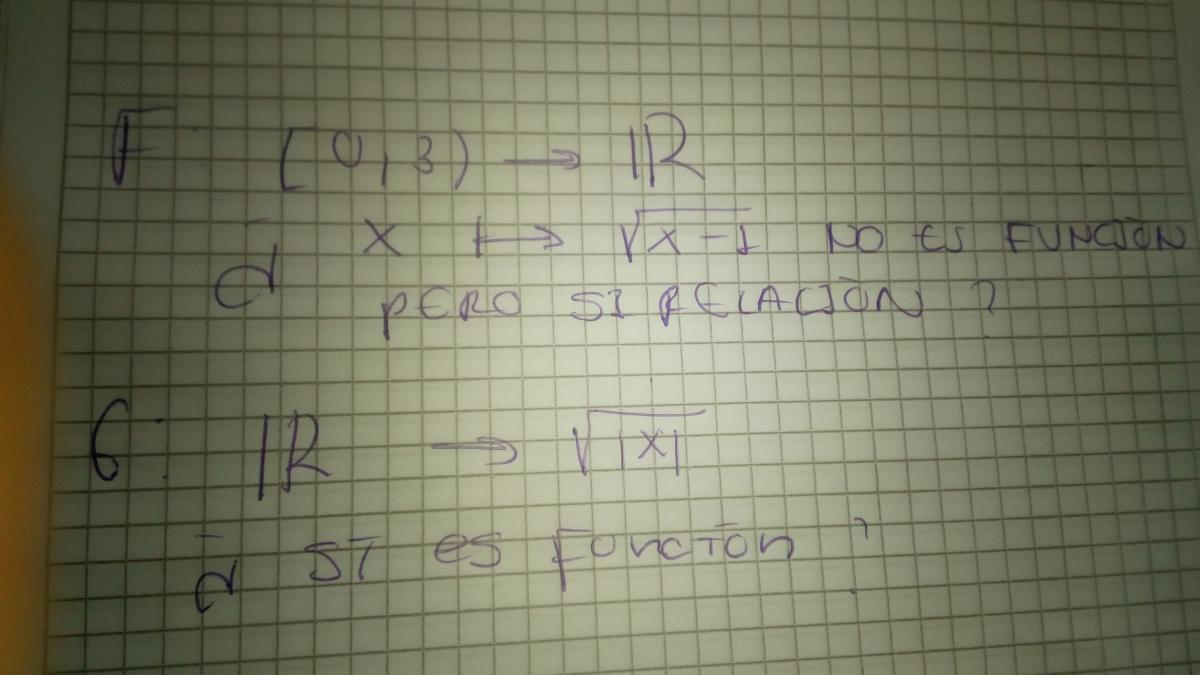 F: [0,3) → IR
¿ x ↦ √x-1 NO ES FUNCIÓN
PERO SI RELACIÓN ?
G: IR → √|x|
¿ SI es FUNCION ?